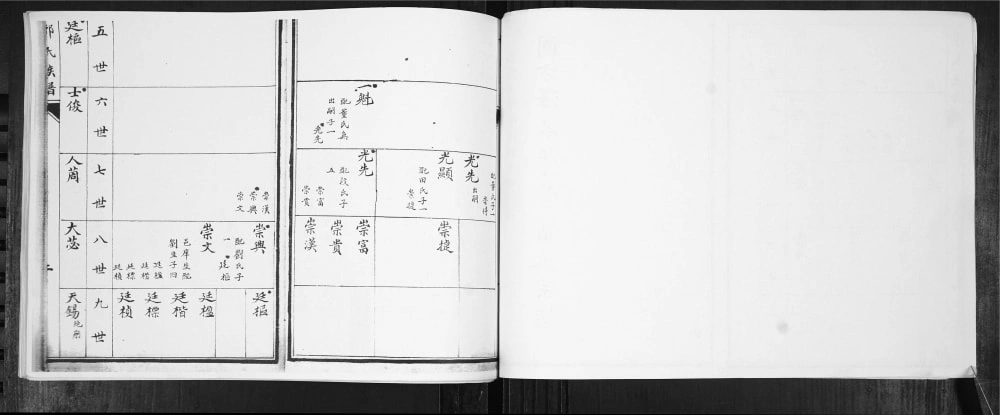 一魁
配董氏無
出嗣子一
光先
光先
出嗣
光顯
配田氏子一
光先
配段氏子
五
崇富
崇貴
崇漢
崇興
崇文
崇捷
崇富
崇貴
崇漢
崇興
配劉氏子
一
廷樞
崇文
邑庠生配
劉氏子四
廷楹
廷楷
廷標
廷楨
廷樞
廷楹
廷楷
廷標
廷楨
五世
六世
七世
八世
九世
廷樞
士俊
人蔄
大苾
天錫
氏族譜